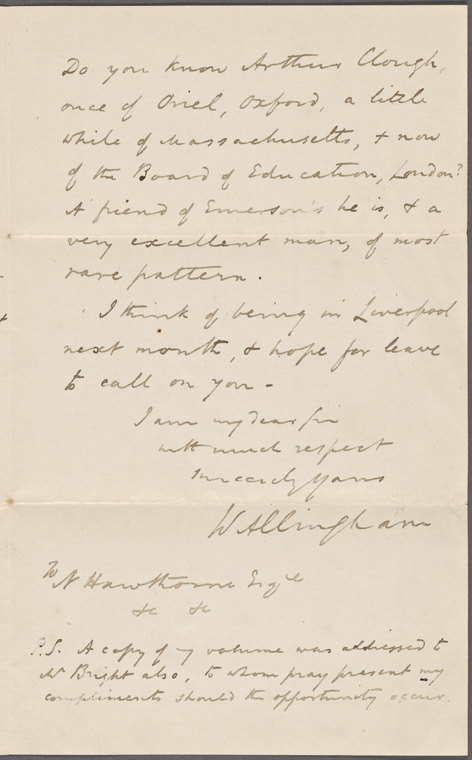 Do you know Arthur Clough,
once of Oriel, Oxford, a little
while of Massachusetts, & now
of the Board of Education, London?
A friend of Emerson's he is, & a
very excellent man, of most
rare pattern.
I think of being in Liverpool
next month, & hope for leave
to call on you -
I am my dear Sir
with much respect
Sincerely Yours
W Allingham
To N Hawthorne Esqre
&c &c
P.S. A copy of my volume was addressed to
Mr Bright also, to whom pray present my
compliments should the opportunity occur.